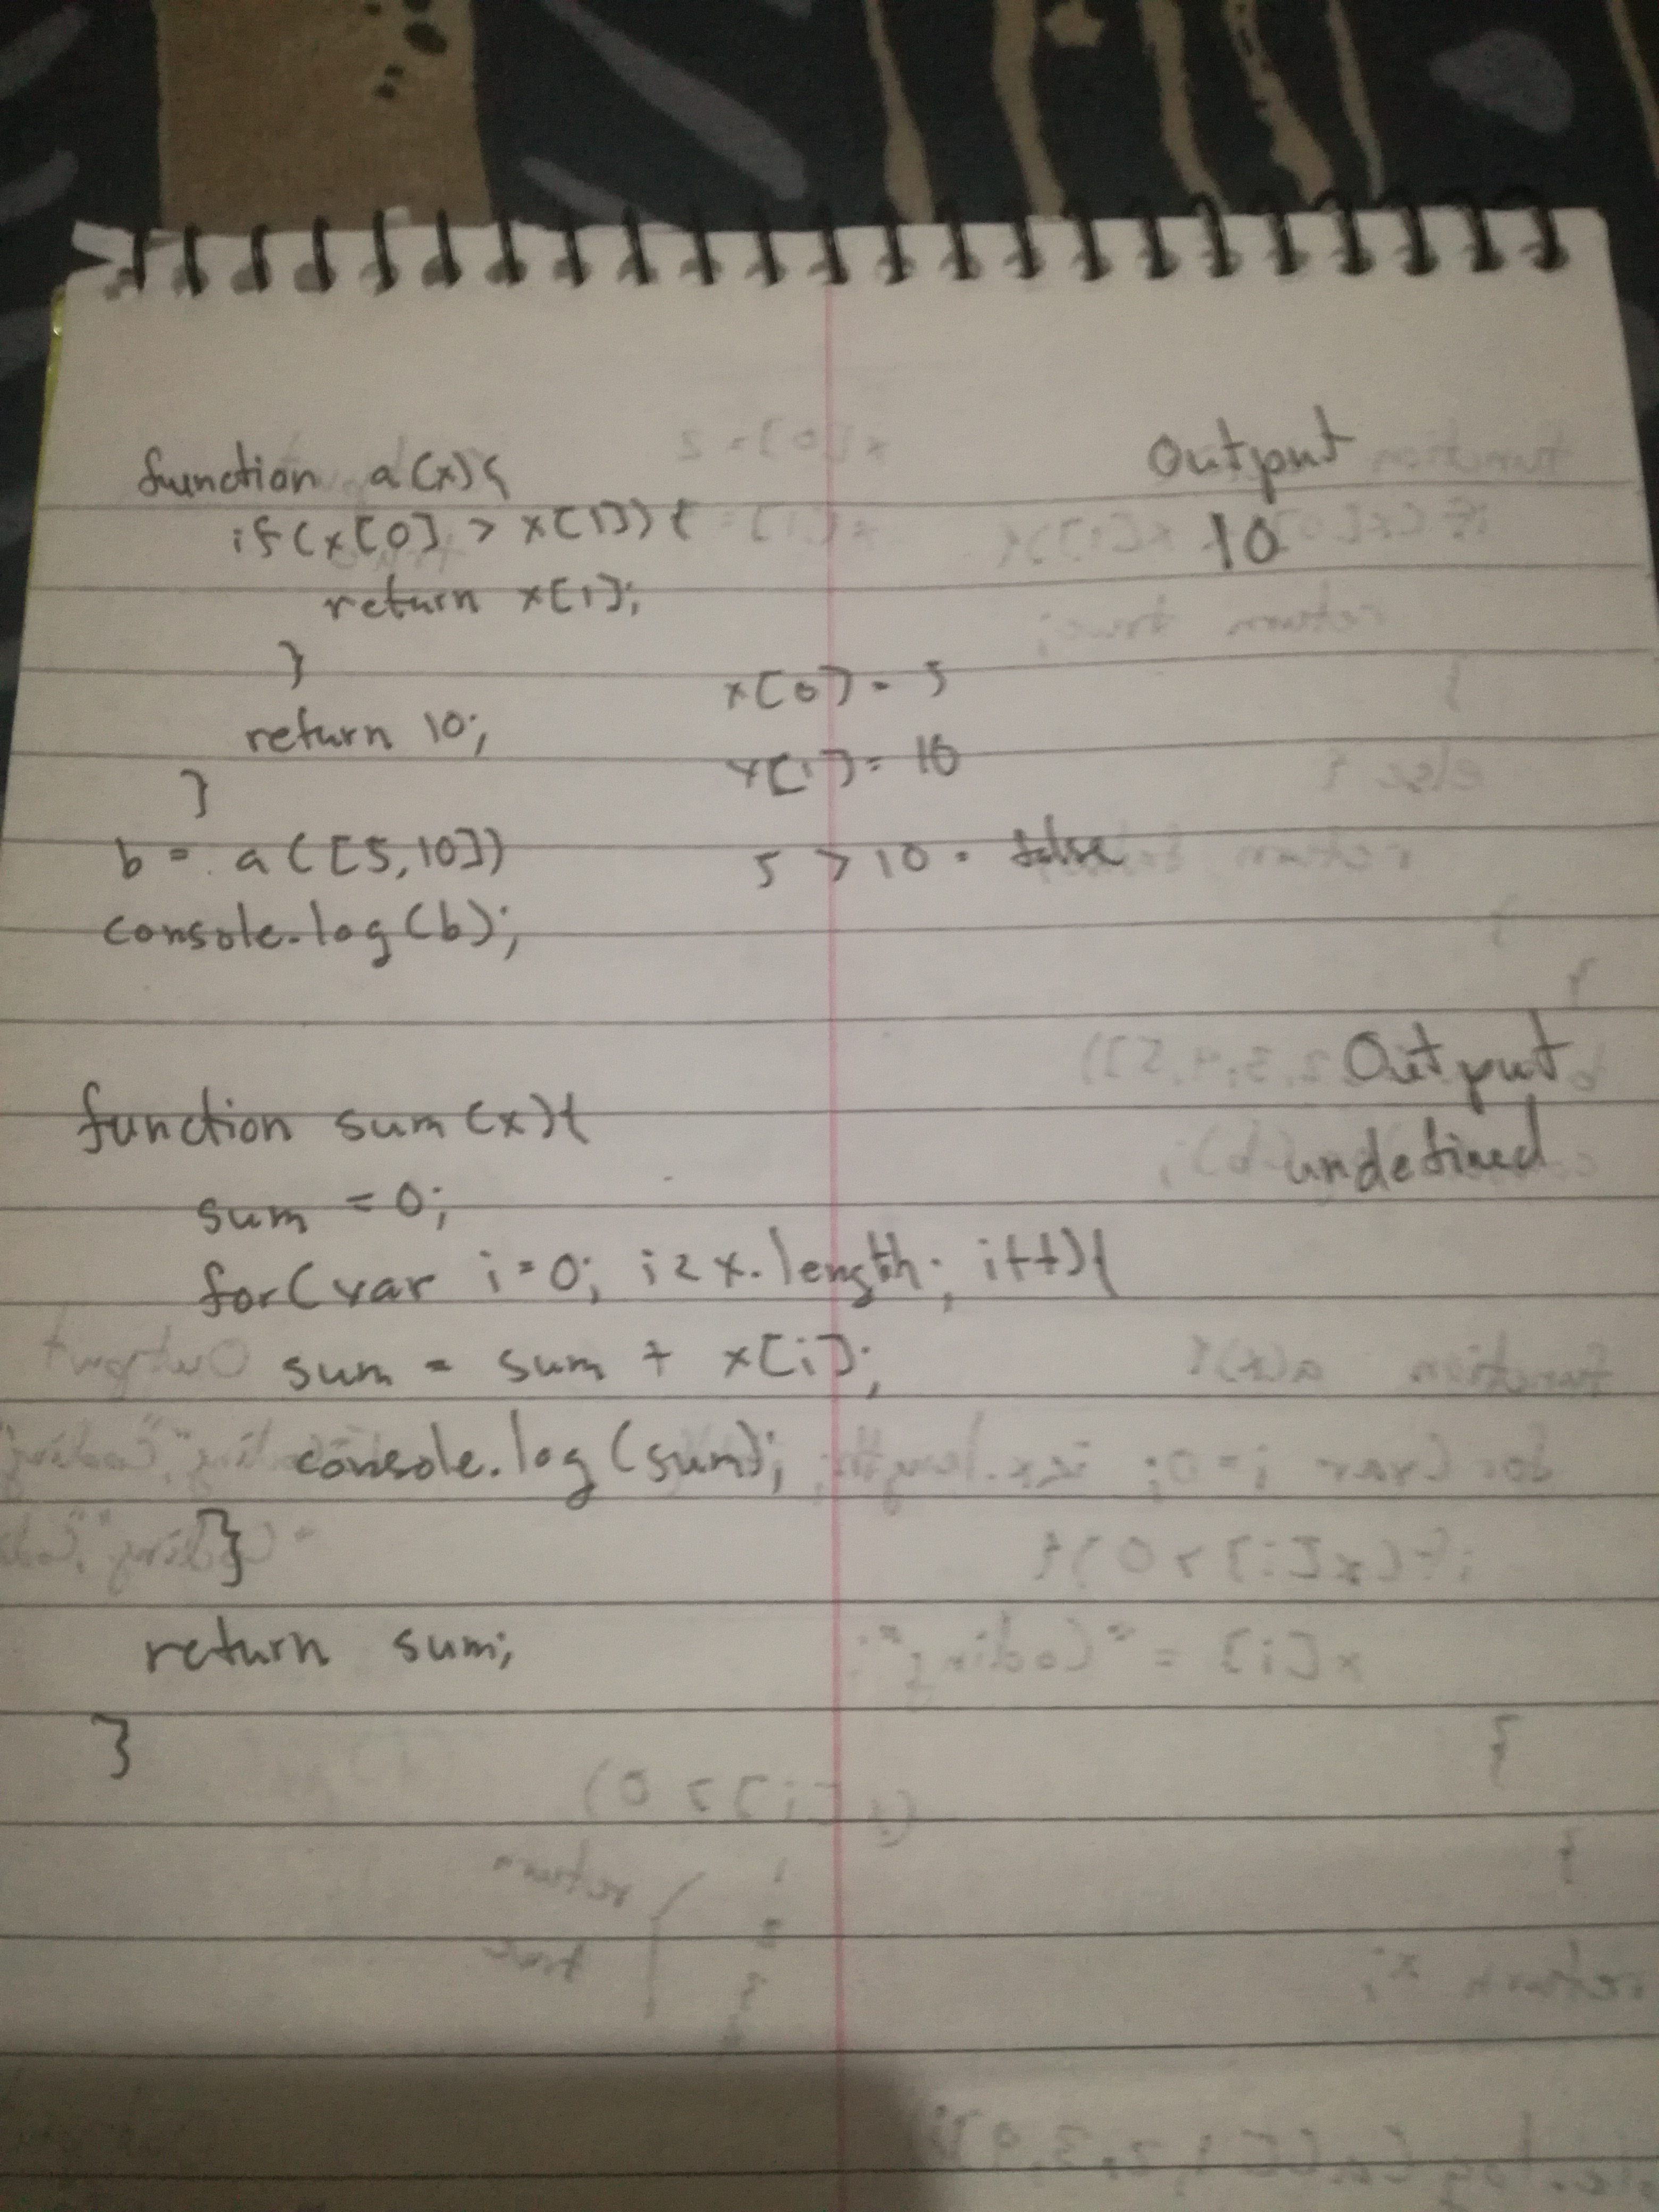 function a(x){
if(x[0] > x[1]){
return x[1];
}
return 10;
}
b = a([5,10])
console.log(b);
Output
10
x[0] = 5
x[1] = 10
5 > 10 = false
function sum(x){
sum = 0;
for(var i=0; i<x.length; i++){
sum = sum + x[i];
console.log(sum);
}
return sum;
}
Output
undefined